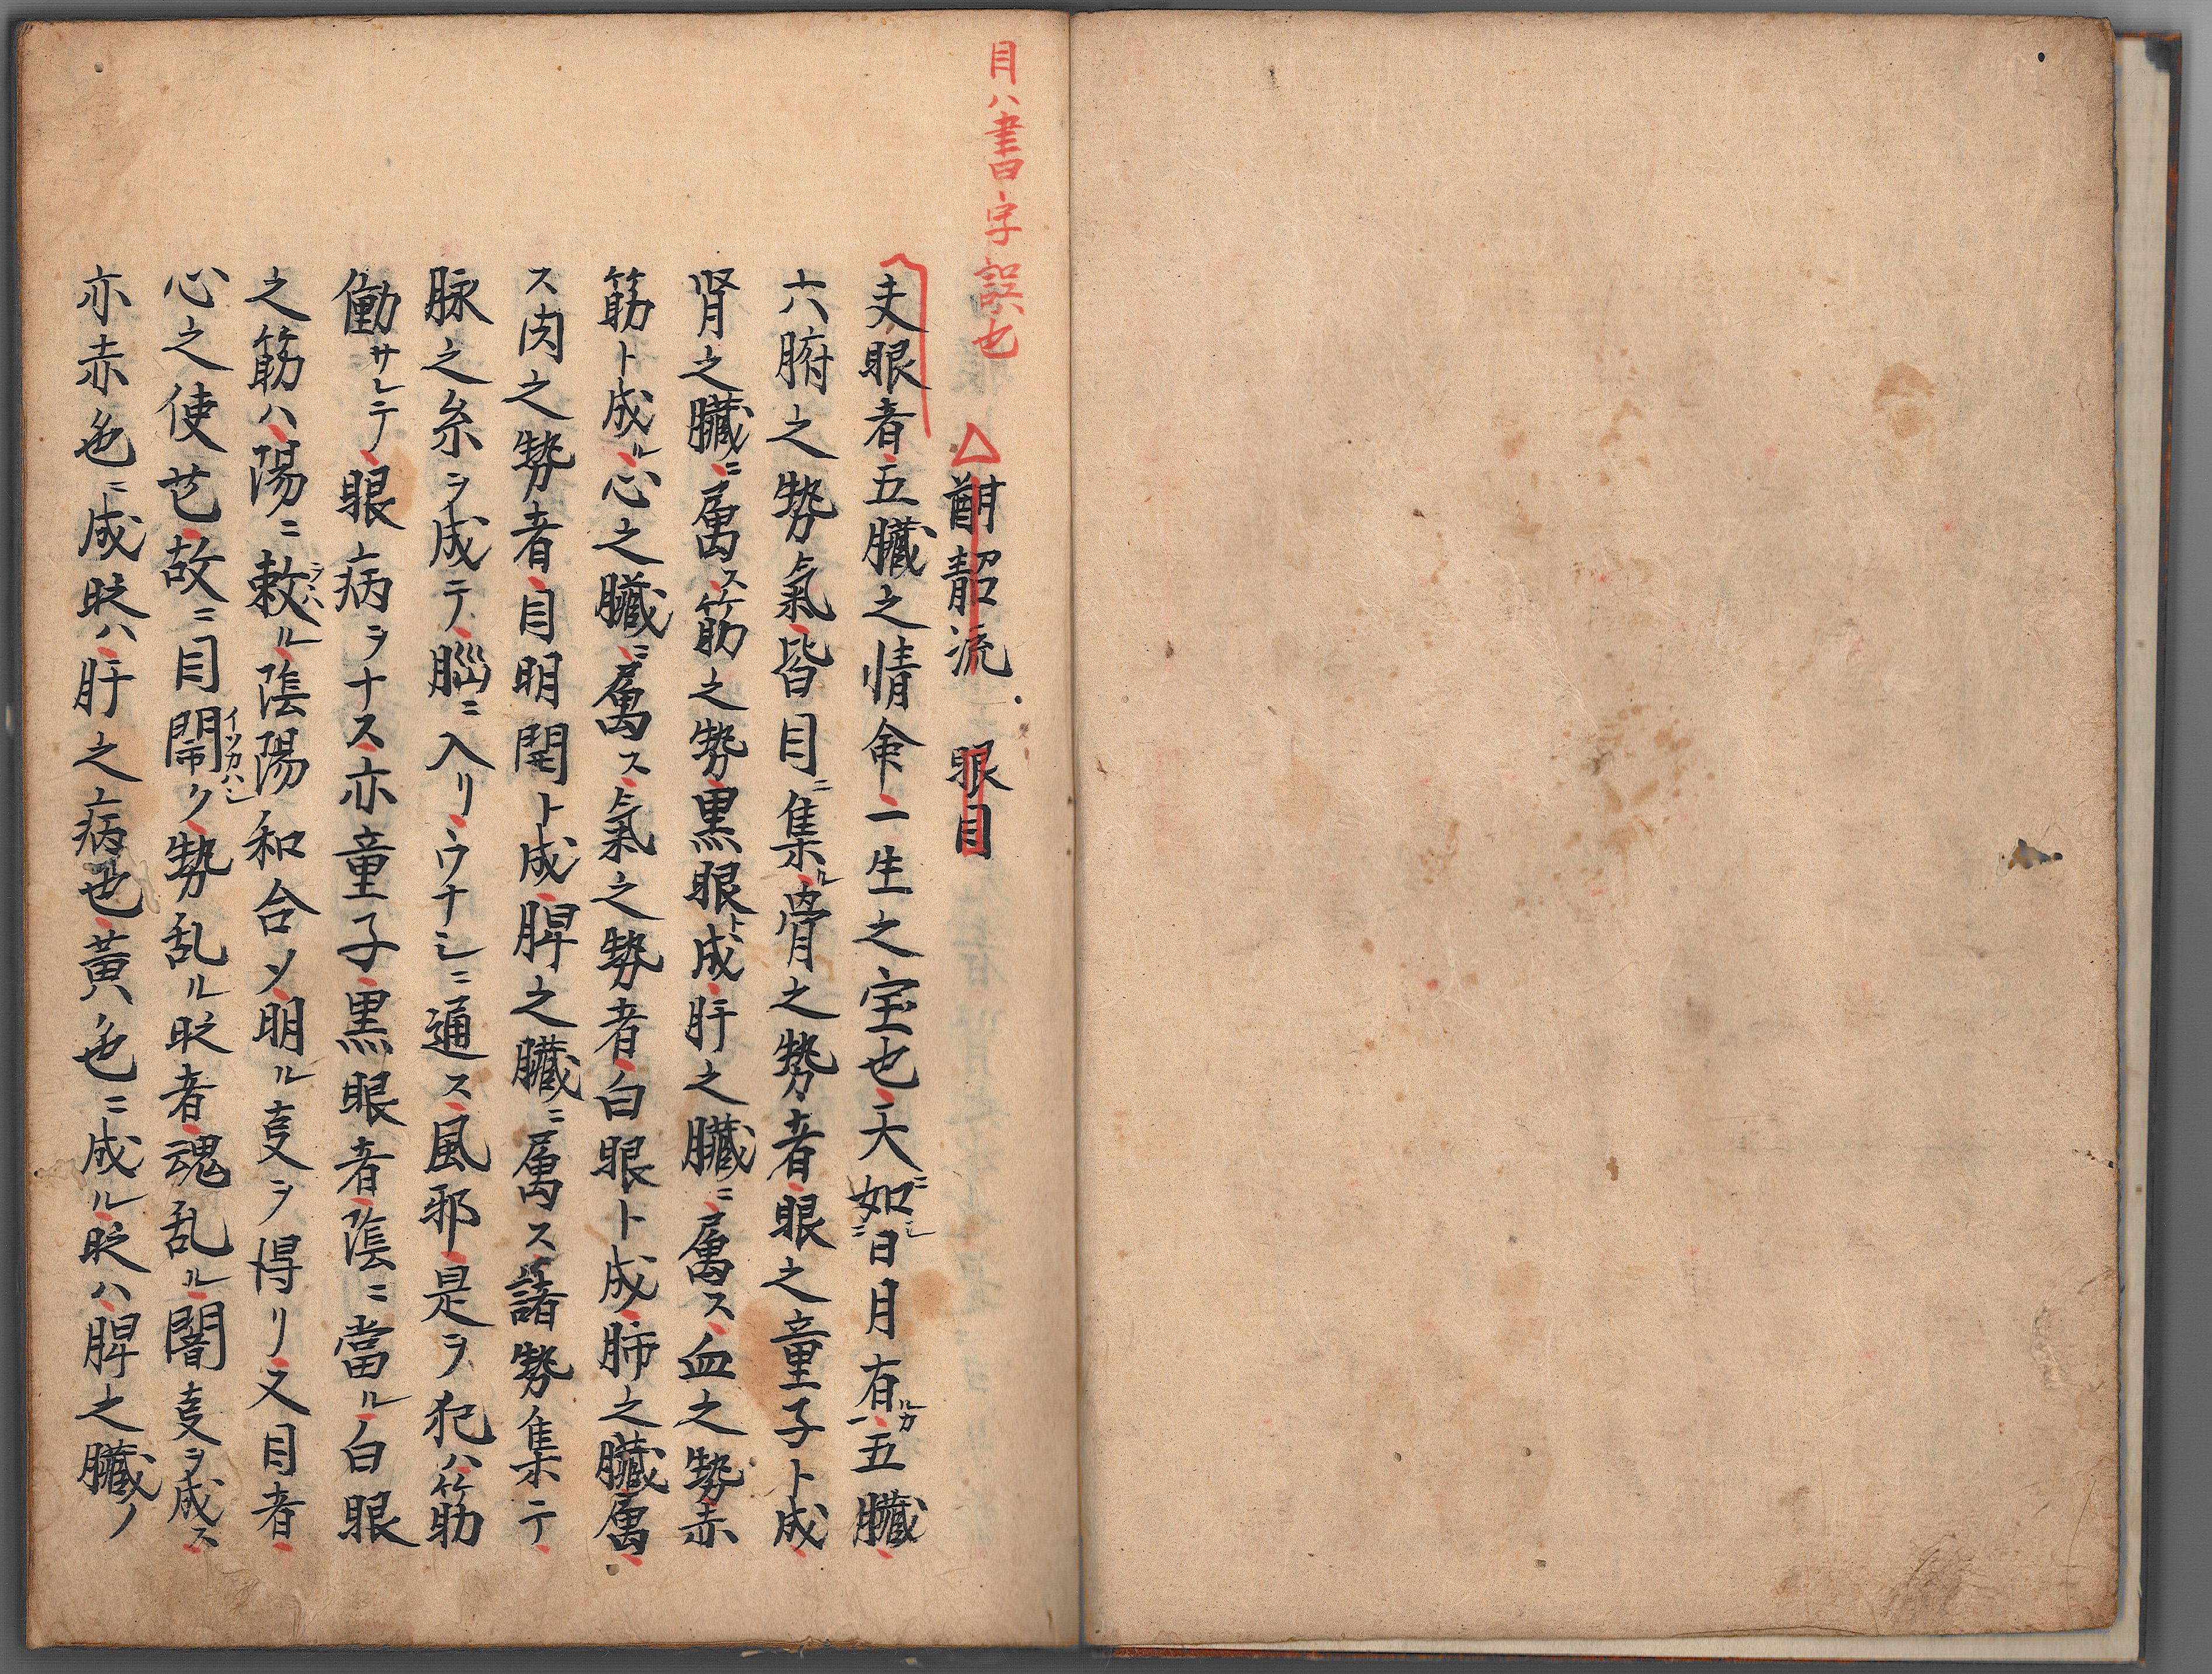 目ハ書字誤也
△ 韶流 眼目
夫眼者五臓之情命一生之宝也天如ニシ日月ニ有ルカ五臓
六腑之勢氣皆目ニ集ル骨之勢者眼之童子ト成
腎之臓ニ属ス筋之勢黒眼ト成肝之臓ニ属ス血之勢赤
筋ト成ル心之臓ニ属ス氣之勢者白眼ト成肺之臓属
ス肉之勢者目明開ト成脾之臓ニ属ス諸勢集テ
脉之糸ヲ成テ脳ニ入リウナシニ通ス風邪是ヲ犯ハ筋
働サレテ眼病ヲナス亦童子黒眼者陰ニ當ル白眼
之筋ハ陽ニ敕ル陰陽和合ソ明ル㕝ヲ得リ又目者
心之使也故ニ目閙イツカハシク勢乱ル眨者魂乱ル闇㕝ヲ成ス
亦赤色ニ成眨ハ肝之病也黄色ニ成ル眨ハ脾之臓ノ